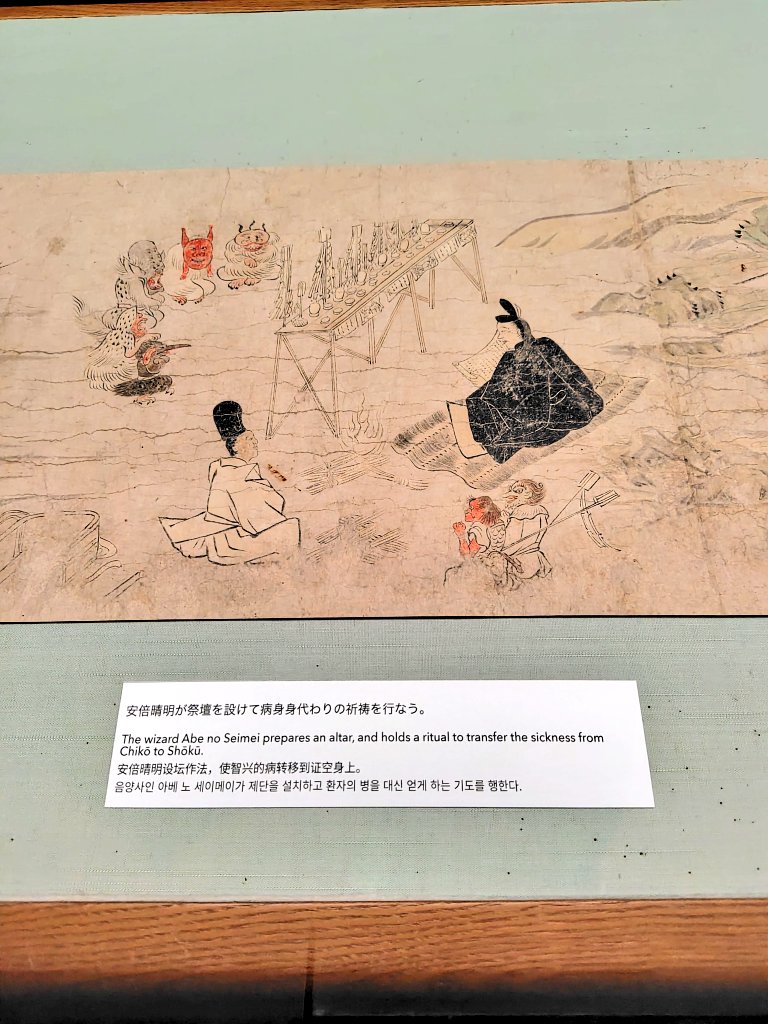 安倍晴明が祭壇を設けて病身身代わりの祈祷を行なう。
The wizard Abe no Seimei prepares an altar, and holds a ritual to transfer the sickness from
Chikō to Shōkū.
安倍晴明设坛作法，使智兴的病转移到证空身上。
음양사인 아베 노 세이메이가 제단을 설치하고 환자의 병을 대신 얻게 하는 기도를 행한다.